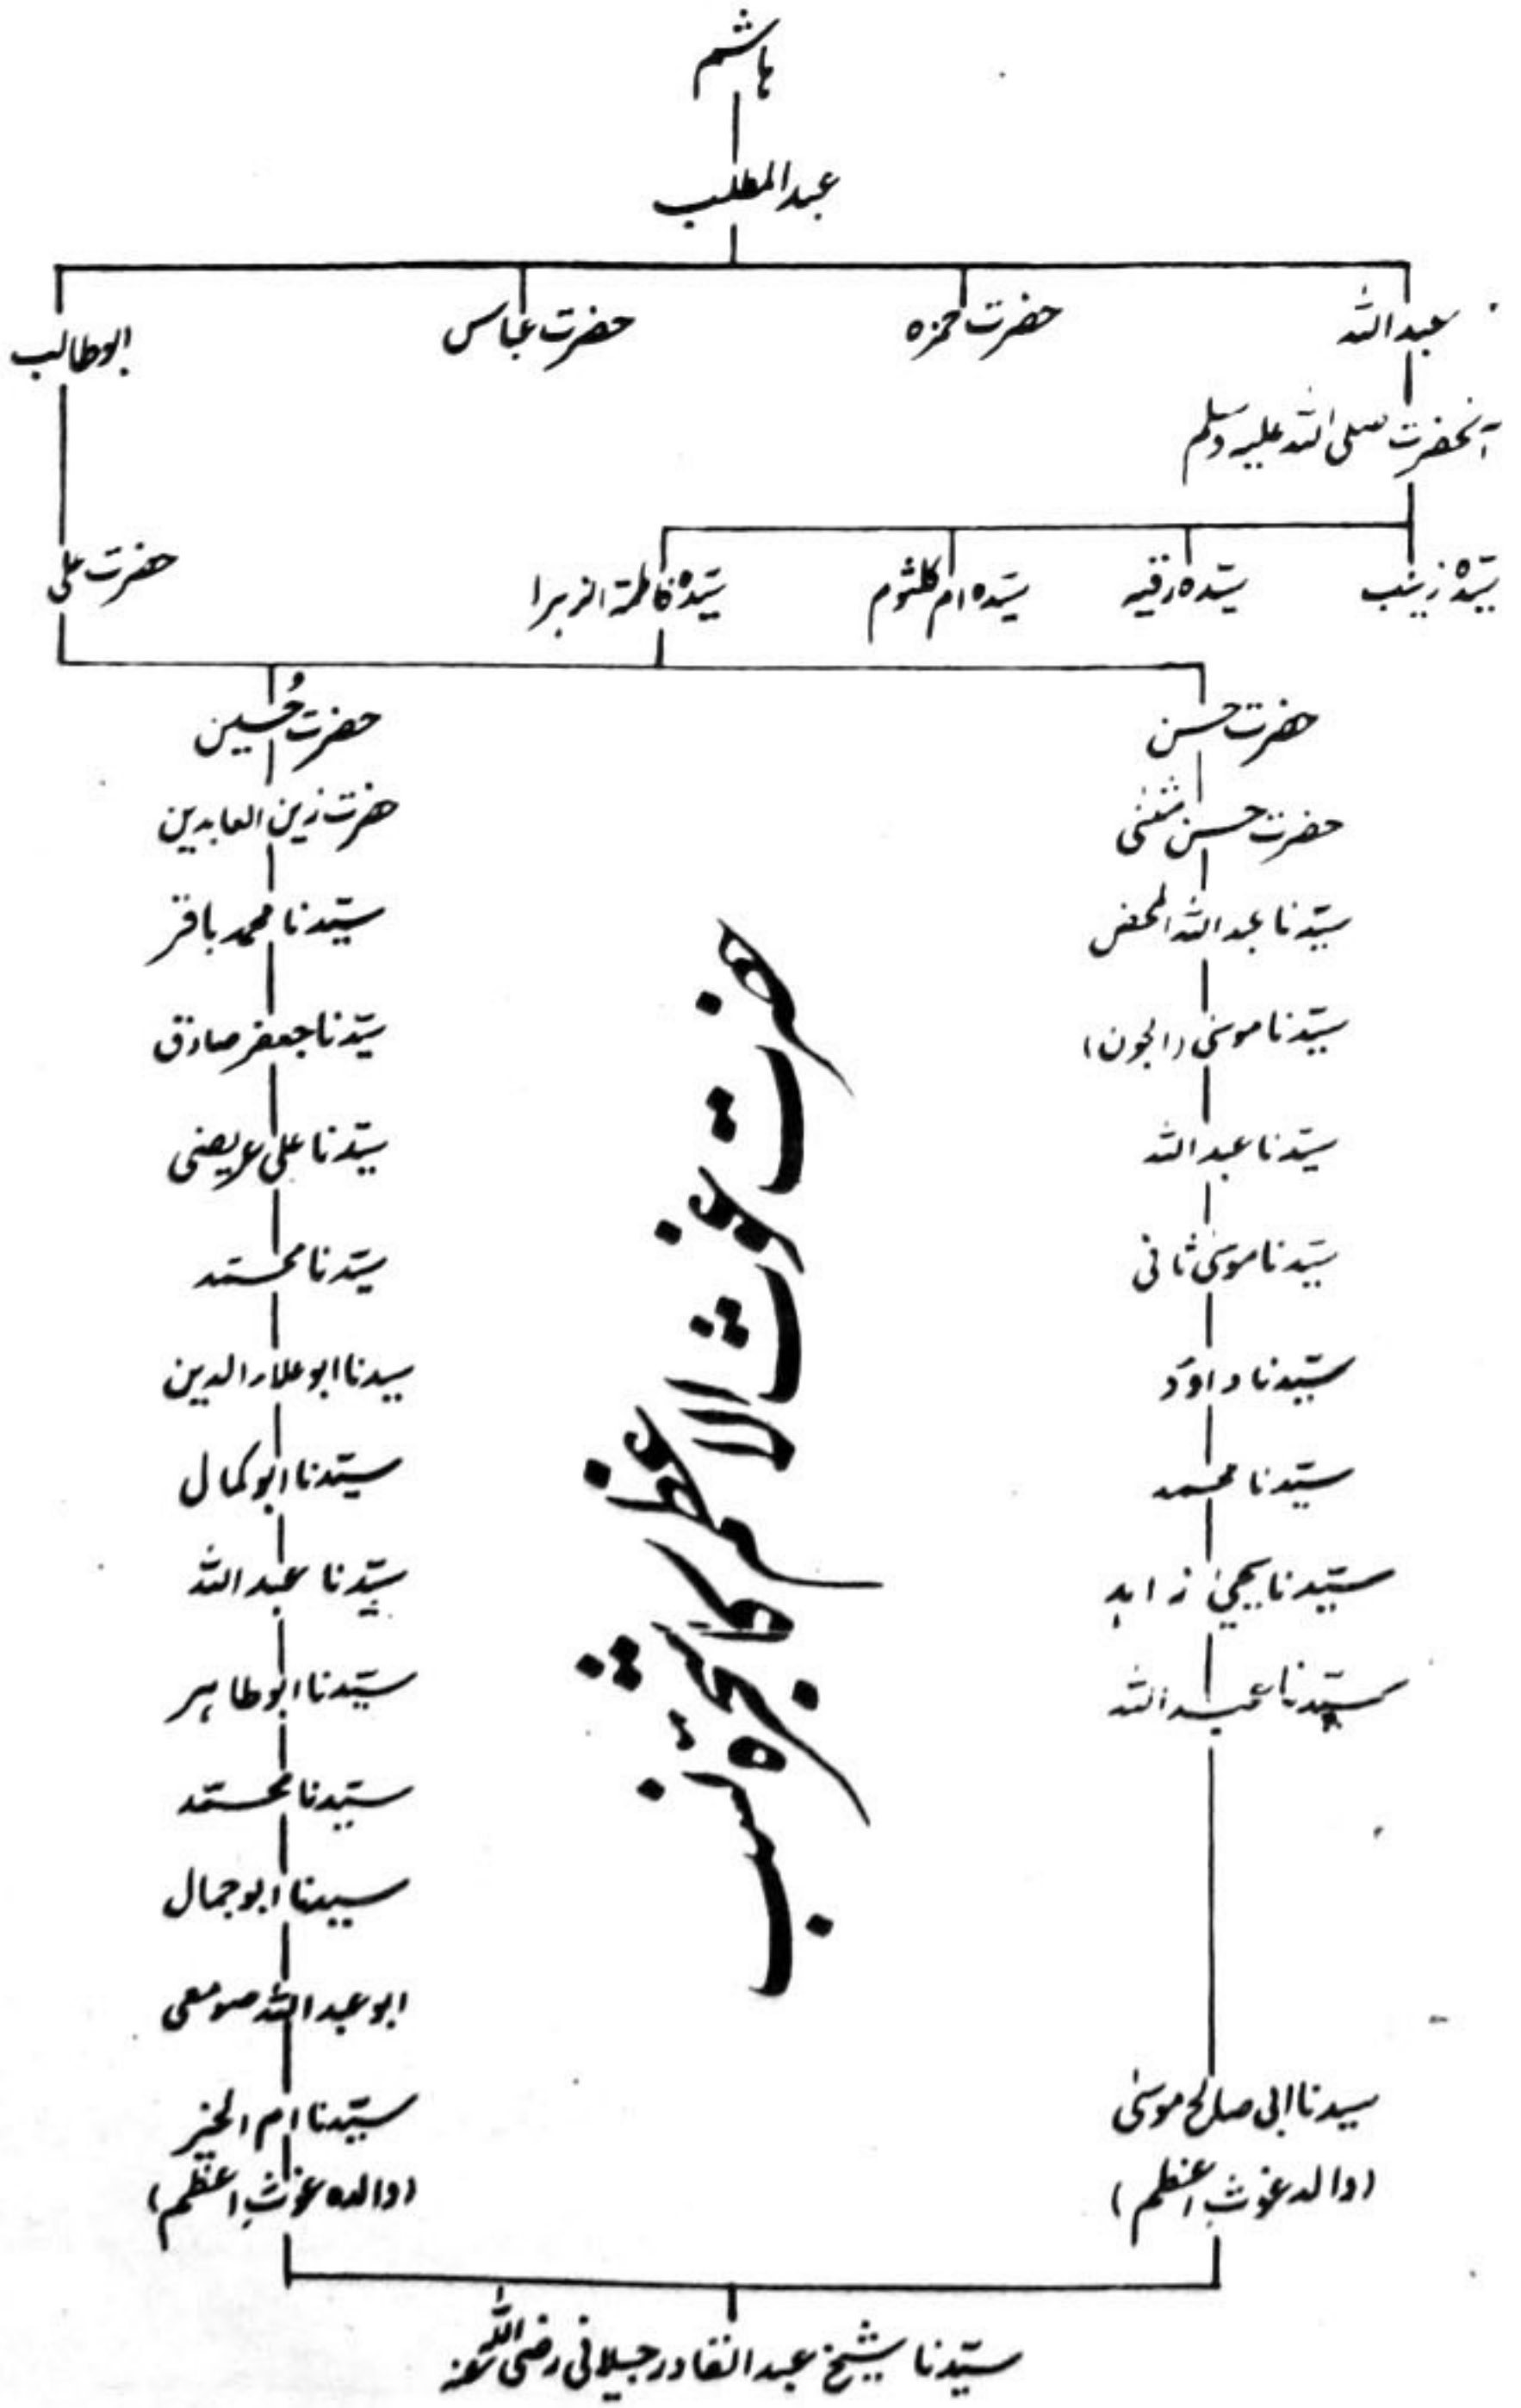 ہاشم
عبدالمطلب
عبداللہ
حضرت حمزہ
حضرت عباس
ابوطالب
آنحضرت صلی اللہ علیہ وسلم
سیّدہ زینب
سیّدہ رقیہ
سیّدہ ام کلثوم
سیّدہ فاطمۃ الزہرا
حضرت علی
حضرت حسن
حضرت حسن مثنیٰ
سیّدنا عبداللہ المحض
سیّدنا موسیٰ (الجون)
سیّدنا عبداللہ
سیّدنا موسیٰ ثانی
سیّدنا داؤد
سیّدنا محمد
سیّدنا یحییٰ زاہد
سیّدنا عبداللہ
سیدنا ابی صالح موسیٰ
(والد غوثِ اعظم)
حضرت غوث الاعظم کا شجرہ نسب
حضرت حُسین
حضرت زین العابدین
سیّدنا محمد باقر
سیّدنا جعفر صادق
سیّدنا علی عریضی
سیّدنا محمّد
سیدنا ابو علاء الدین
سیّدنا ابو کمال
سیّدنا عبداللہ
سیّدنا ابو طاہر
سیّدنا محمّد
سیدنا ابو جمال
ابو عبداللہ صومعی
سیّدنا ام الخیر
(والدہ غوثِ اعظم)
سیّدنا شیخ عبدالقادر جیلانی رضی اللہ عنہ